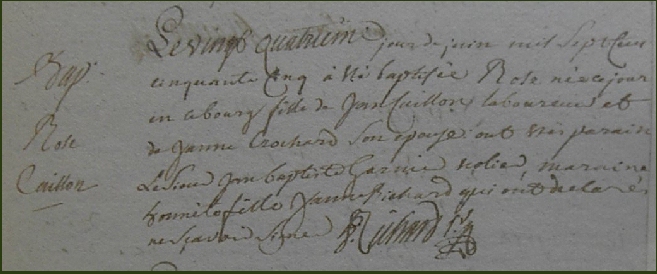 Le vingt quatrieme jour de juin mil sept cen
Bap.
cinquante cinq à été baptisée Rose née ce jour
in cebourg fille de Jean Caillon laboureur et
Rose
de Janne Crochard Son epouse ont etés parain
Caillon
Le Sieur Jean baptiste Garnie maraine
fille Janne Richard qui ont declaré
ne sçavoir signé Richard